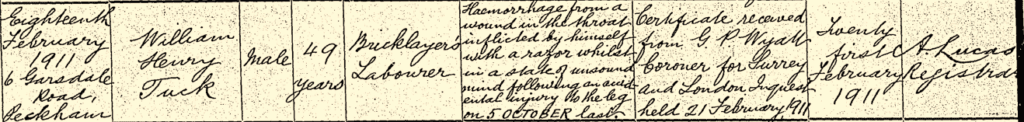 Eighteenth
February
1911
6 Garsdale
Road,
Peckham
William
Henry
Tuck
Male
49
years
Bricklayer's
Labourer
Haemorrhage from a
wound in the throat
inflicted by himself
with a razor whilst
in a state of unsound
mind following an accid
ental injury to the leg
on 5 OCTOBER last.
Certificate received
from G. P. Wyatt
Coroner for Surrey
and London Inquest
held 21 February 1911
Twenty
first
February
1911
A. Lucas
Registrar